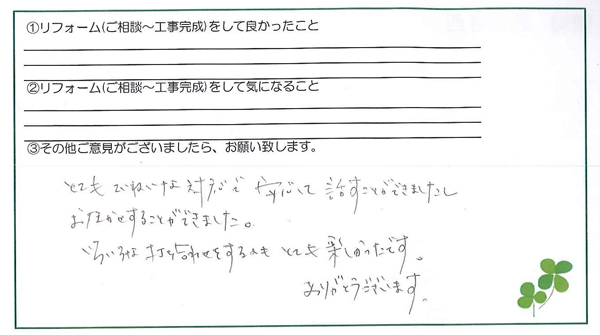 ①リフォーム(ご相談～工事完成)をして良かったこと
②リフォーム(ご相談～工事完成)をして気になること
③その他ご意見がございましたら、お願い致します。
とてもていねいな対応で安心して話すことができましたし
お任せすることができました。
いろいろな打ち合わせをするのもとても楽しかったです。
ありがとうございます。